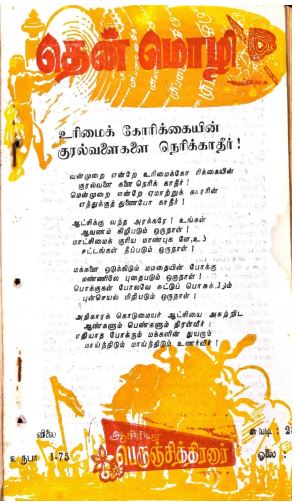 தென் மொழி
உரிமைக் கோரிக்கையின்
குரல்வளைகளை நெரிக்காதீர் !
வன்முறை என்றே உரிமைக்கோ ரிக்கையின்
குரல்வளை களை நெரிக் காதீர் !
மென்முறை என்றே ஏமாற்றுக் கூரரின்
எத்துக்குத் துணைபோ காதீர் !
ஆட்சிக்கு வந்த அரக்கரே ! உங்கள்
ஆவணம் கிழிபடும் ஒருநாள் !
மாட்சிமைக் குரிய மாண்புக ளே,உம்
சட்டங்கள் தீப்படும் ஒருநாள் !
மக்களை ஒடுக்கிடும் மமதையின் போக்கு
மண்ணிலே புதைபடும் ஒருநாள் !
பொக்குகள் போலவே சுட்டுப் பொசுக்கிடும்
புன்செயல் பிறிபடும் ஒருநாள் !
அதிகாரக் கொடுமையர் ஆட்சியை அகற்றிட
ஆண்களும் பெண்களும் திரள்வீர் !
எதியாத போக்கும் மக்களின் துயரும்
மாய்ந்திடும் மாய்ந்திடும் உணர்வீர் !
விலை
உருபா 1-75
ஆசிரியர்
பெருஞ்சித்திரனார்
சுவடி : 2
ஓலை :